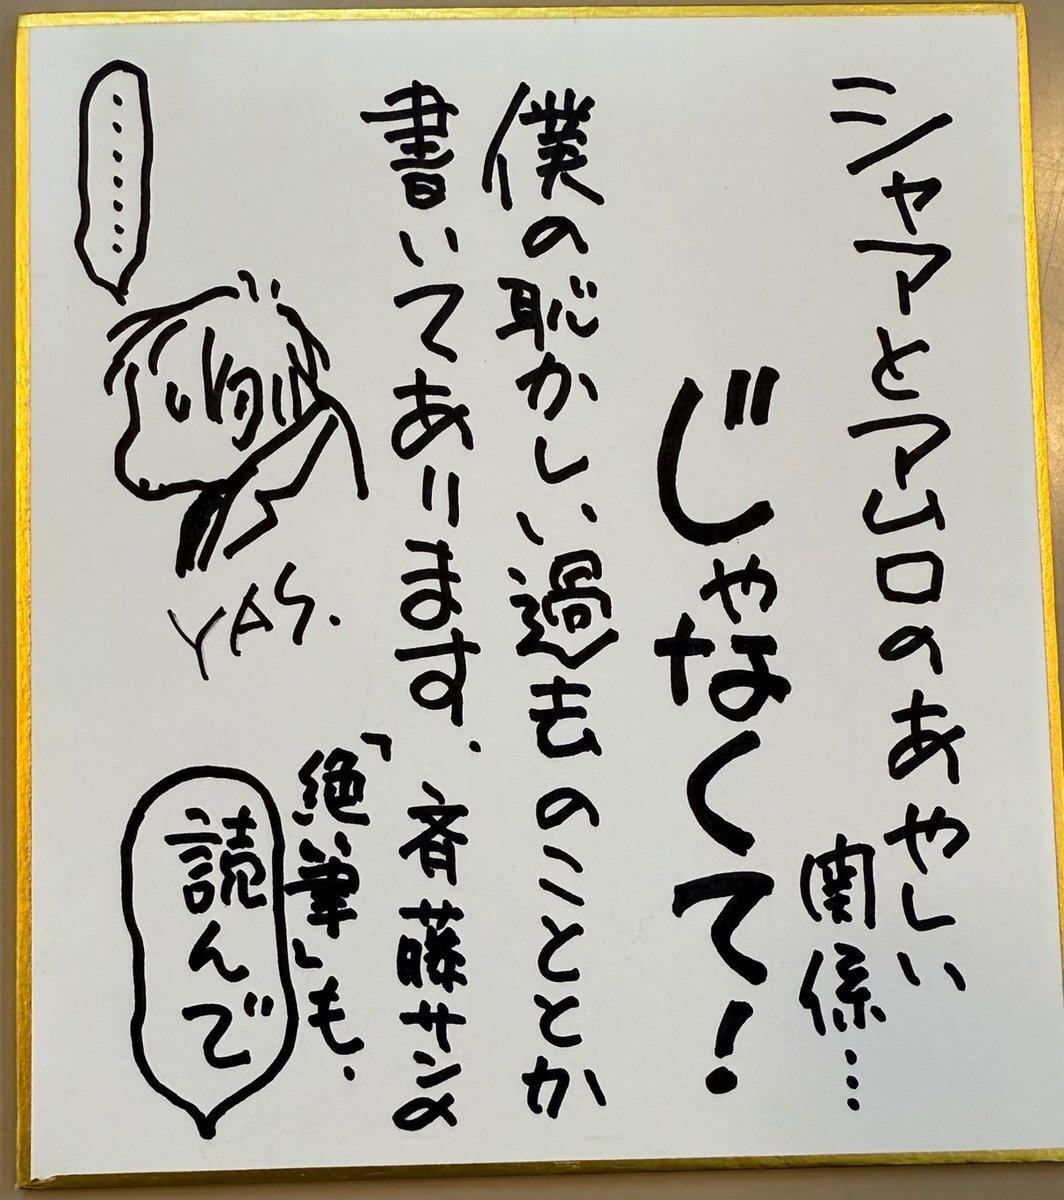 シャアとアムロのあやしい
関係…
じゃなくて!
僕の恥かしい過去のこととか
書いてあります.
斉藤サンの
「絶筆」も.
読んで
………
YAS.